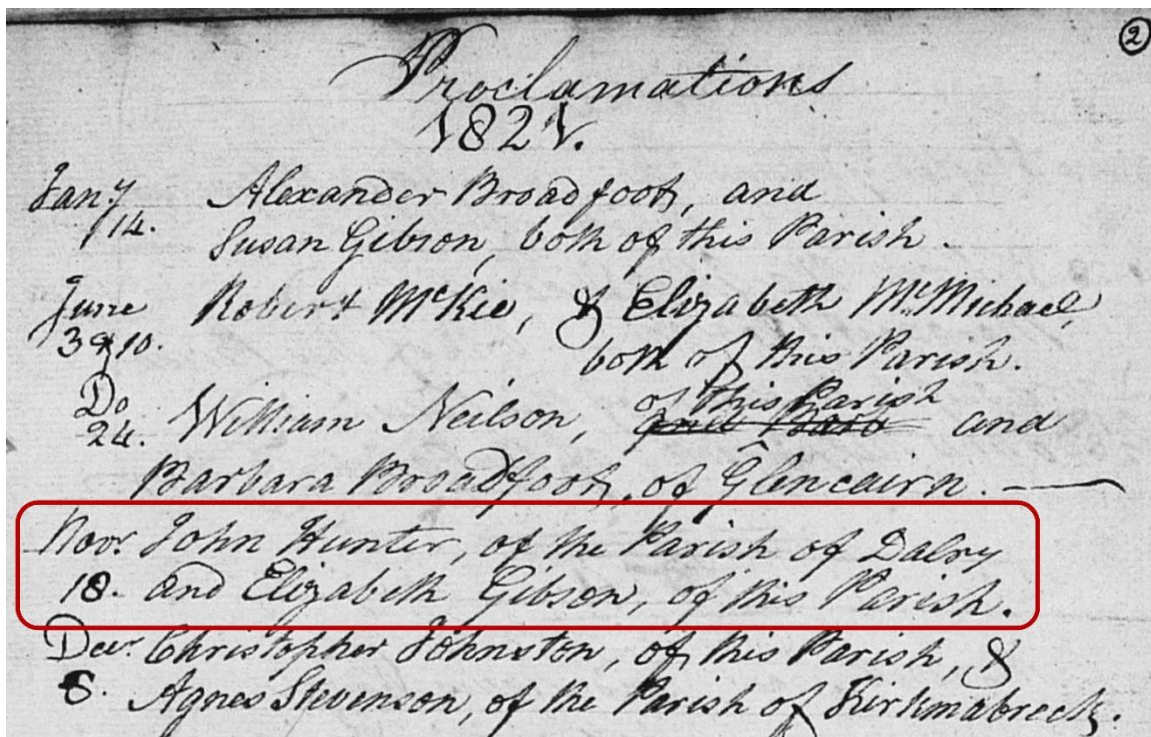 2
Proclamations
1821.
Jany Alexander Broadfoot, and
14. Susan Gibson, both of this Parish.
June Robert McKie, & Elizabeth McMichael,
3 & 10. both of this Parish.
Do of this Parish
24. William Neilson, and
Barbara Broadfoot, of Glencairn.
Novr. John Hunter, of the Parish of Dalry
18. and Elizabeth Gibson, of this Parish.
Decr. Christopher Johnston, of this Parish, &
Agnes Stevenson, of the Parish of Kirkmabreck.